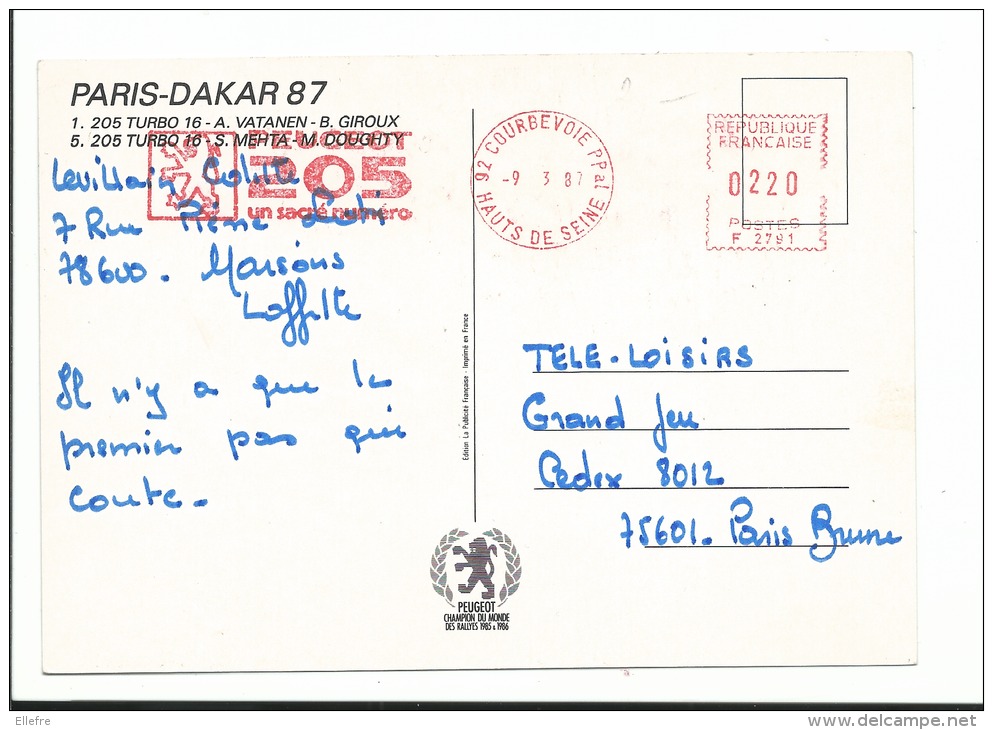 PARIS-DAKAR 87
1. 205 TURBO 16 - A. VATANEN - B. GIROUX
5. 205 TURBO 16 - S. MEHTA - M. DOUGHTY
PEUGEOT
205
un sacré numéro
92 COURBEVOIE PPal
-9 3 87
HAUTS DE SEINE
REPUBLIQUE
FRANCAISE
0220
POSTES
F 2791
Levillain
7 Rue
78600. Maisons
Laffitte
Il n'y a que le
premier pas qui
coute.
Edition La Publicité Française - Imprimé en France
TELE-LOISIRS
Grand Jeu
Cedex 8012
75601. Paris Brune
PEUGEOT
CHAMPION DU MONDE
DES RALLYES 1985 & 1986
Ellefre
www.delcampe.net